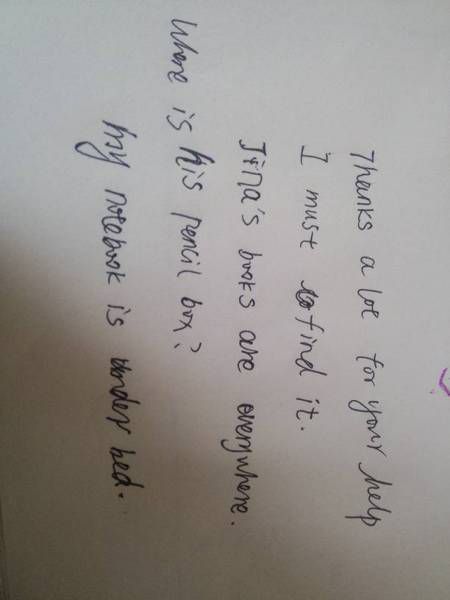 Thanks a lot for your help
I must find it.
Jina's books are everywhere.
Where is his pencil box?
My notebook is under bed.